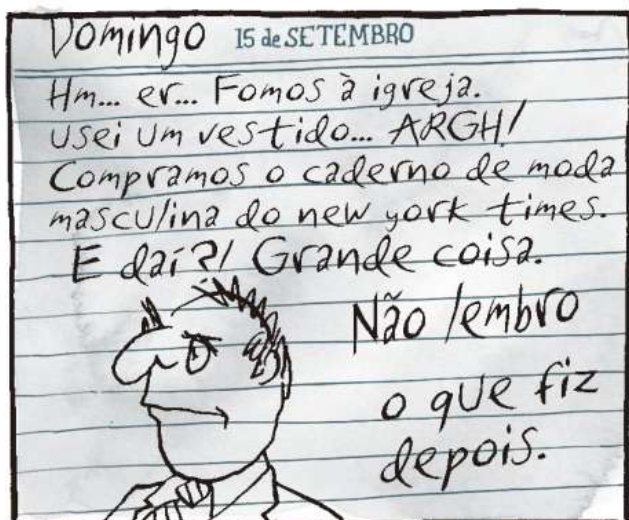 Domingo 15 de SETEMBRO
Hm... er... Fomos à igreja.
usei um vestido... ARGH!
Compramos o caderno de moda
masculina do new york times.
E daí?! Grande coisa.
Não lembro
o que fiz
depois.